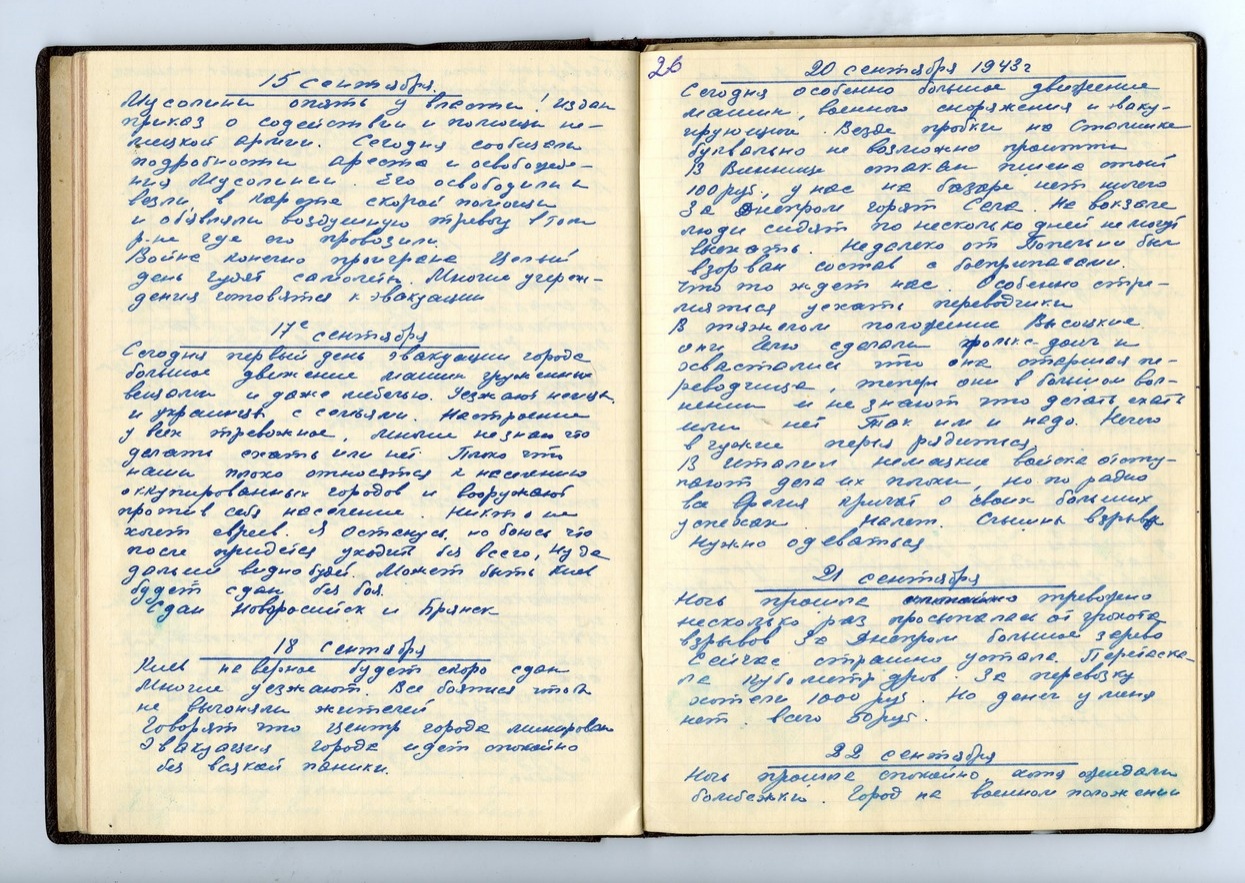 15 сентября.
Мусолини опять у власти! Издан
приказ о содействии и помощи не-
мецкой армии. Сегодня сообщали
подробности ареста и освобожде-
ния Мусолинии. Его освободили и
везли в карете скорой помощи
и обявляли воздушную тревогу в том
р-не где его провозили.
Война конечно проиграна Целый
день гудят самолеты. Многие учреж-
дения готовятся к эвакуации
17е сентября
Сегодня первый день эвакуации города
большое движение машин груженных
вещами и даже мебелью. Уезжают немцы
и украинцы с семьями. Настроение
у всех тревожное, многие не знают что
делать ехать или нет. Плохо что
наши плохо относятся к населению
оккупированных городов и вооружают
против себя население. Никто не
хочет евреев. Я останусь, но боюсь что
после придется уходить без всего, ну да
дальше видно будет. Может быть Киев
будет сдан без боя.
Сдан Новоросийск и Брянск
18 сентября
Киев наверное будет скоро сдан
Многие уезжают. Все боятся чтоб
не выгоняли жителей
Говорят что центр города минирован
Эвакуация города идет спокойно
без всякой паники.
26
20 сентября 1943г
Сегодня особенно большое движение
машин, военного снаряжения и эваку-
ирующих. Везде пробки на Сталинке
буквально не возможно пройтти
В Виннице стакан пшена стоит
100 руб., у нас на базаре нет ничего
За Днепром горят Села. На вокзале
люди сидят по несколько дней не могут
выехать. Недалеко от Попельни был
взорван состав с боеприпасами.
Что то ждет нас. Особенно стре-
мятся уехать переводчики
В тяжелом положение Высоцкие
они Лилю сделали фолькс-дойч и
хвастались что она старшая пе-
реводчица, теперь они в большом вол-
нении и не знают что делать ехать
или нет Так им и надо. Нечего
в чужие перья рядиться,
В Италии немецкие войска отсту-
пают дела их плохи, но по радио
все время кричат о своих больших
успехах. Налет. Слышны взрывы
нужно одеваться
21 сентября
Ночь прошла тревожно
несколько раз просыпалась от грохота
взрывов За Днепром большое зарево
Сейчас страшно устала. Перетаска-
ла кубометр дров. За перевозку
хотели 1000 руб. Но денег у меня
нет. всего 50 руб.
22 сентября
Ночь прошла спокойно, хотя ожидали
бомбежки. Город на военном положении